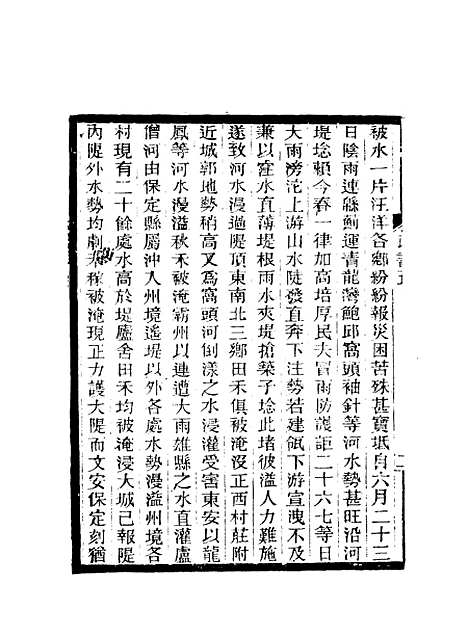 被水一片汪洋各鄉紛紛報災困苦殊甚寶坻自六月二十三
日陰雨連緜薊運青龍灣鮑邱窩頭袖針等河水勢甚旺沿河
堤埝賴今春一律加高培厚民夫冒雨防護詎二十六七等日
大雨滂沱上游山水陡發直奔下注勢若建瓴下游宣洩不及
兼以窪水直薄堤根雨水夾堤搶築子埝此堵彼溢人力難施
遂致河水漫過隄頂東南北三鄉田禾俱被淹沒正西村莊附
近城郭地勢稍高又爲窩頭河倒漾之水浸灌受害東安以龍
鳳等河水漫溢秋禾被淹霸州以連遭大雨雄縣之水直灌盧
僧河由保定縣屬沖入州境遙堤以外各處水勢漫溢州境各
村現有二十餘處水高於堤廬舍田禾均被淹浸大城已報隄
內隄外水勢均劇禾稼被淹現正力護大隄而文安保定刻猶